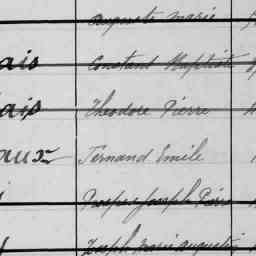 Auguste Marie
ais Constant Baptiste
ais Théodore Pierre
aux Fernand Emile
Prosper Joseph Pierre
Joseph Marie Augustin